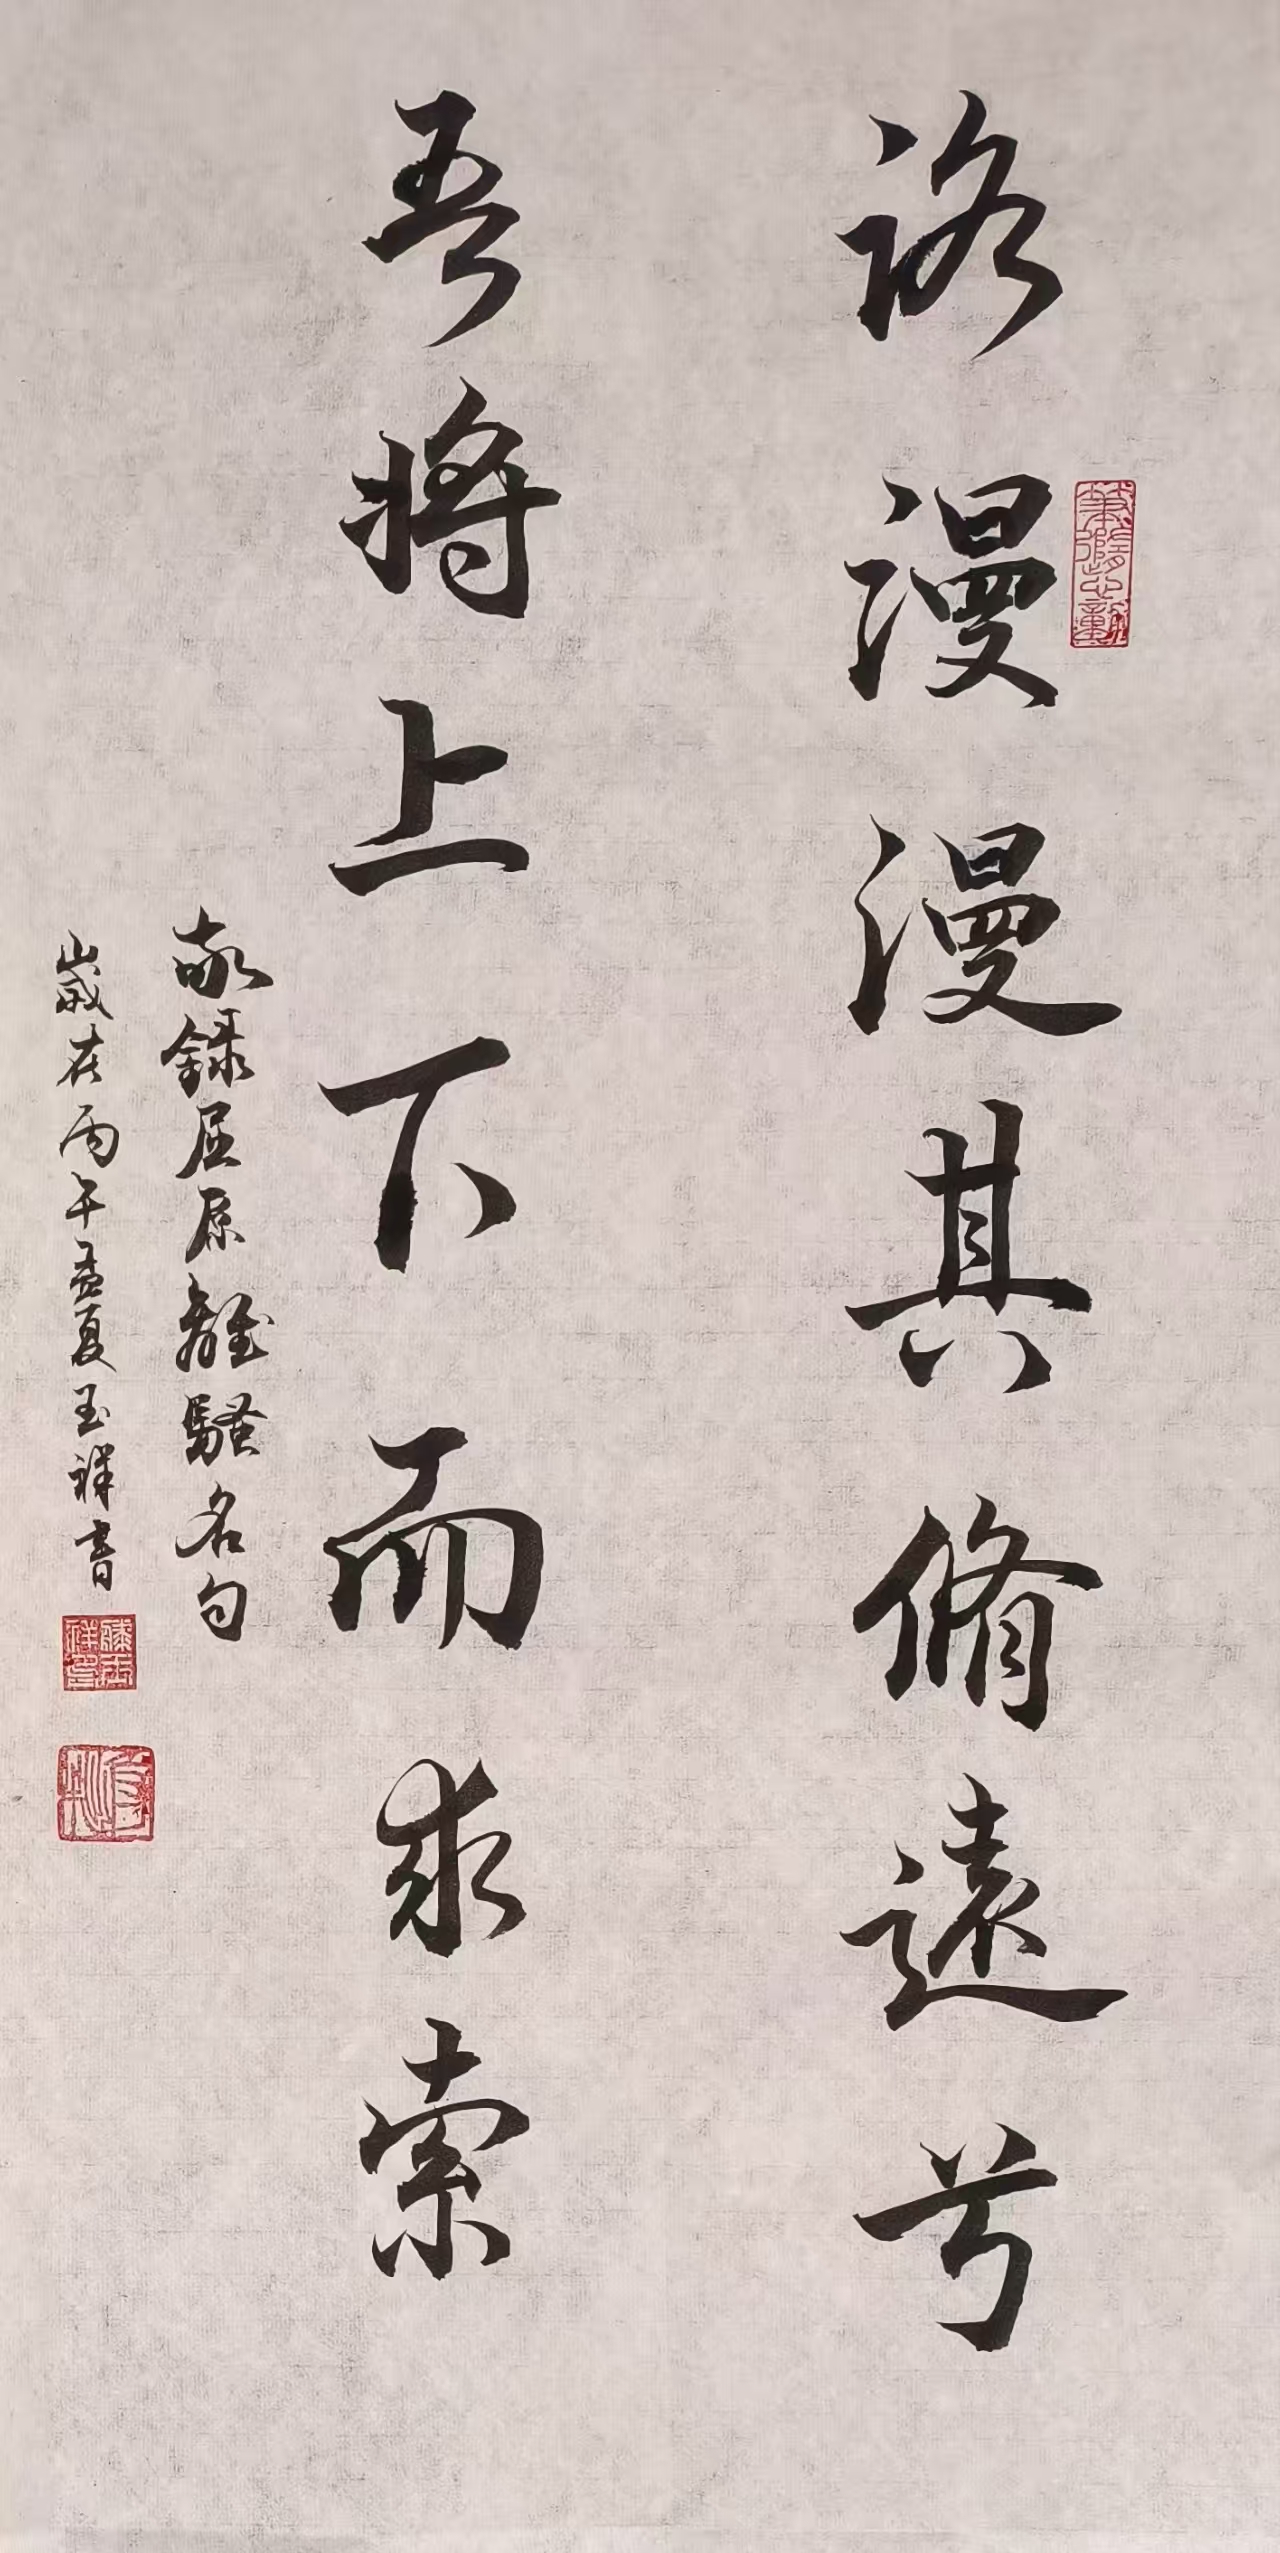 路漫漫其脩遠兮
吾将上下而求索
敬録屈原離騷名句
歲在丙午孟夏玉祥書